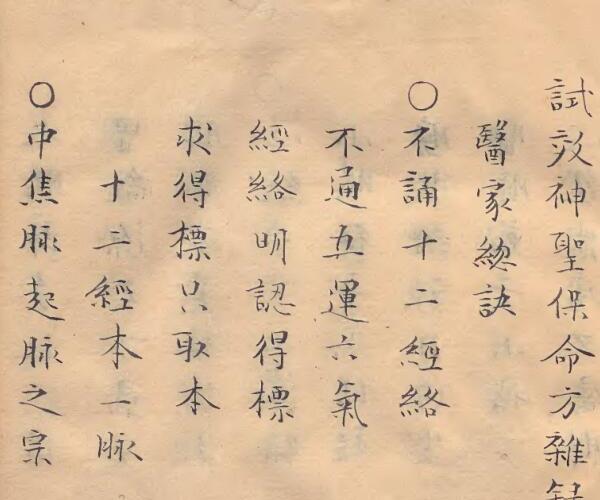 試效神聖保命方雜
醫家緫訣
○不誦十二經絡
不通五運六氣
經絡明認得標
求得標只取本
十二經本一脉
○中焦脉起脉之宗